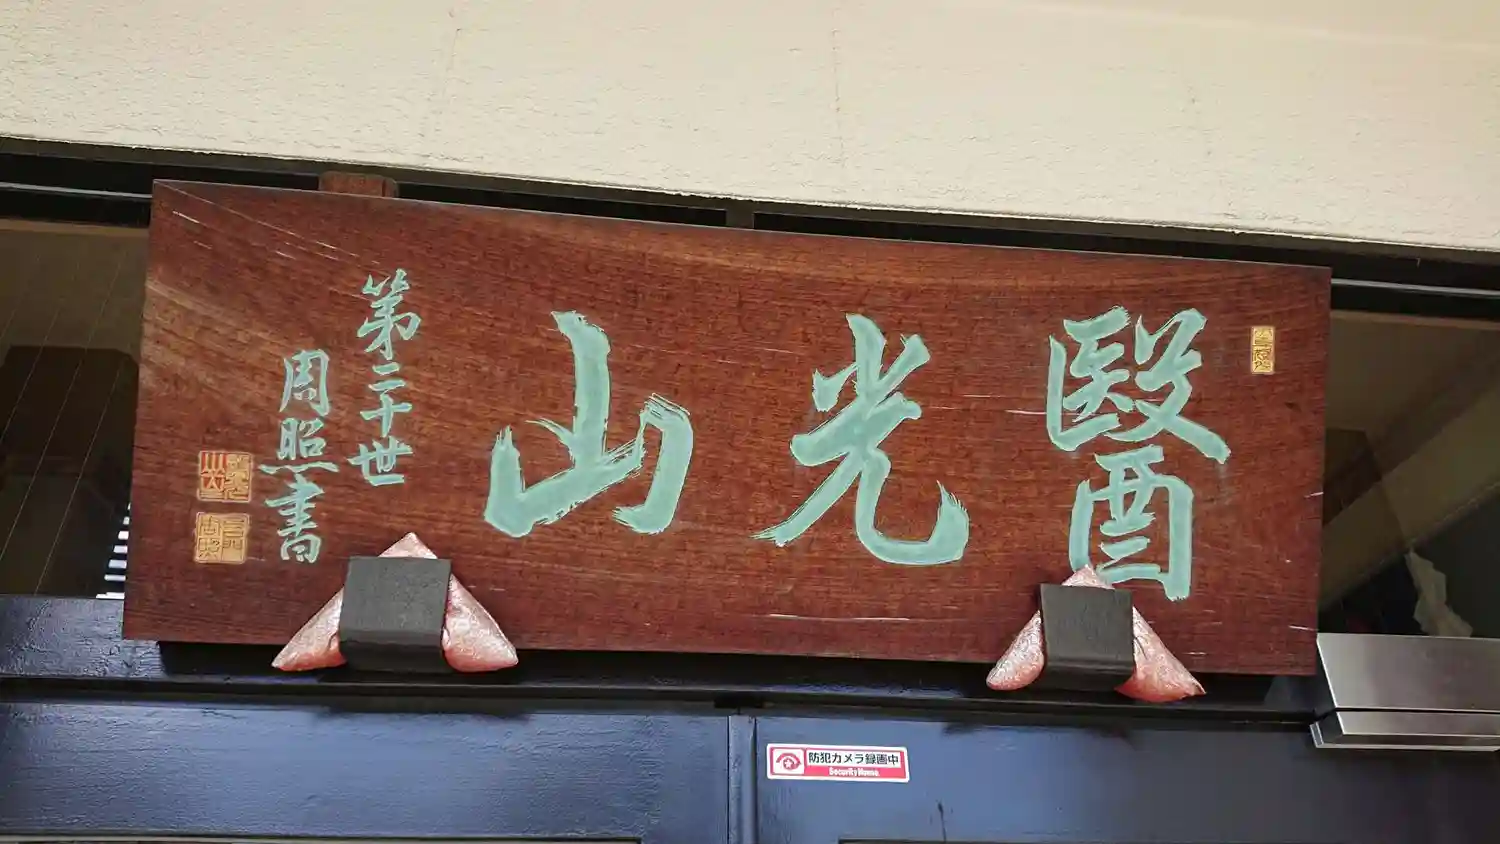 醫光山
第二十世
周照書
防犯カメラ録画中
Security House